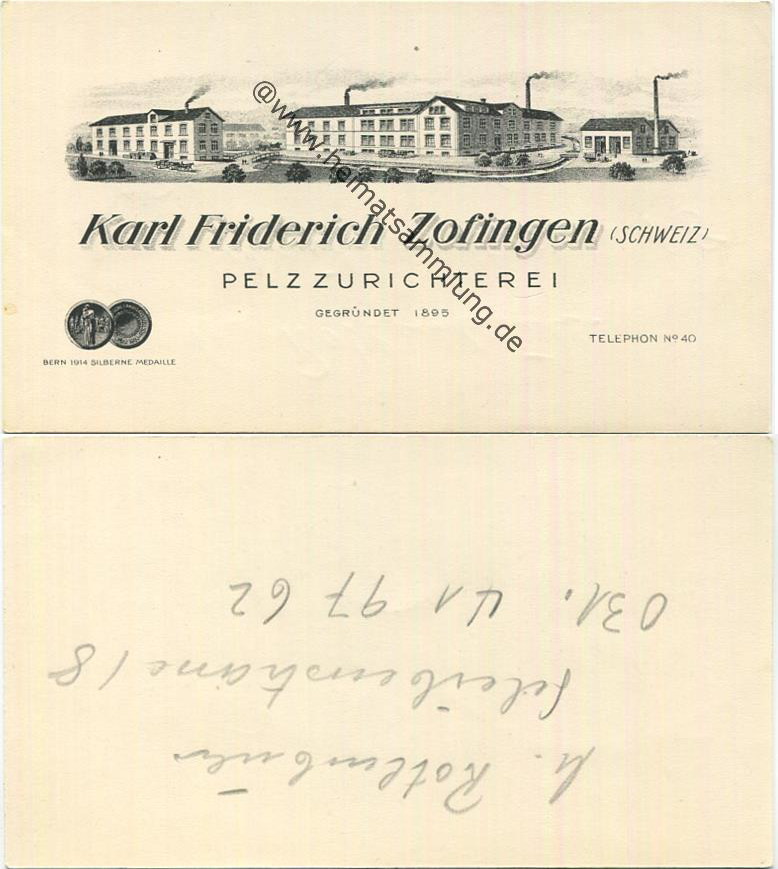 Karl Friderich Zofingen (SCHWEIZ)
PELZZURICHTEREI
GEGRÜNDET 1895
TELEPHON Nº 40
BERN 1914 SILBERNE MEDAILLE
@www.heimatsammlung.de
18
031. 41 97 62